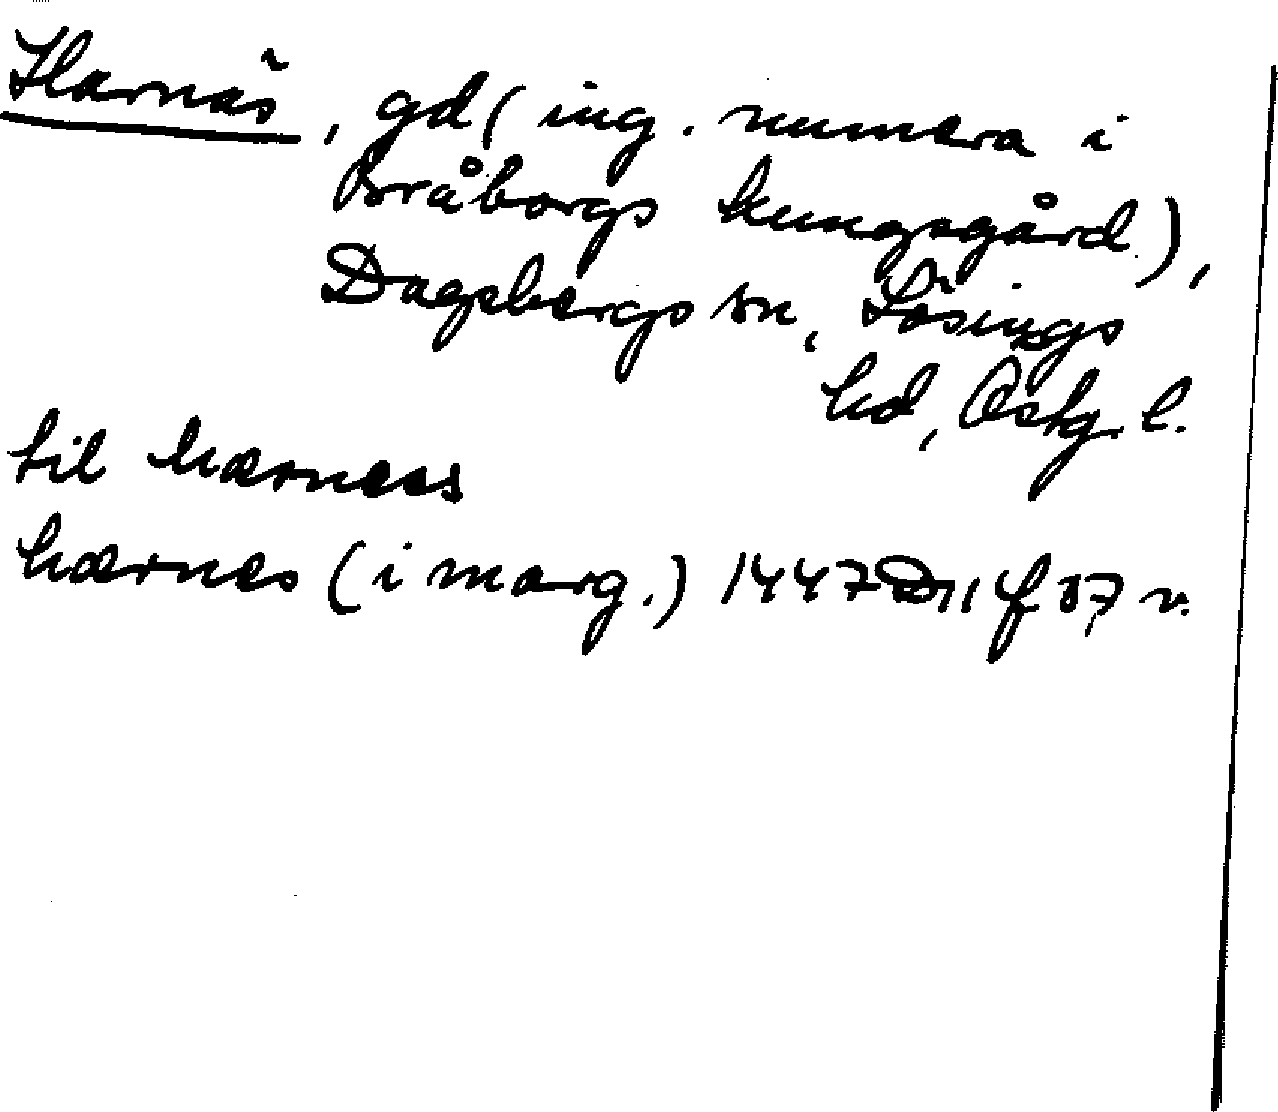 Harnäs, gd (ing. numera i
Bråborgs kungsgård),
Dagsbergs sn, Lösings
hd, Östg. l.
til hærness
hærnes (i marg.) 1447 D 11 f 87 v.